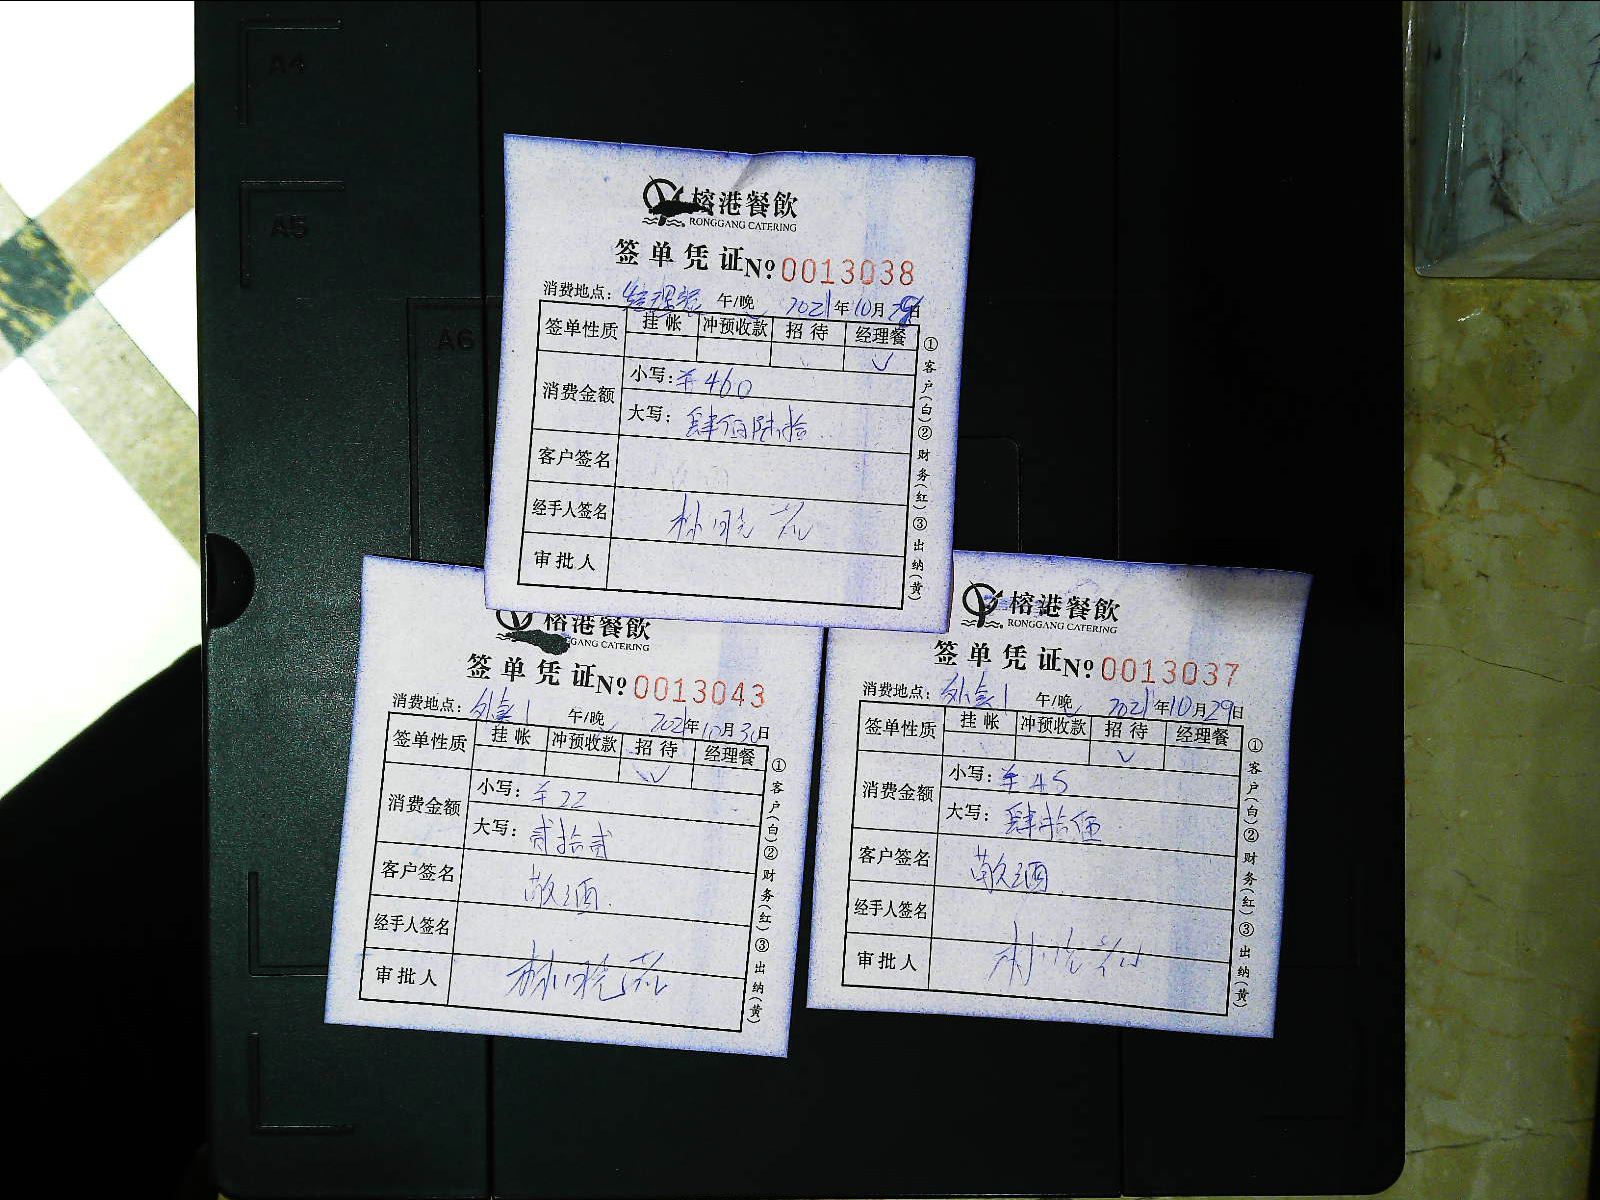 A4
A5
A6
榕港餐飲
RONGGANG CATERING
签单凭证 No 0013038
消费地点: 经理餐 午/晚 2021年10月29日
签单性质 挂帐 冲预收款 招待 经理餐
✓
消费金额 小写: ¥460
大写: 肆佰陆拾
客户签名
经手人签名 林晓花
审批人
①客户(白)②财务(红)③出纳(黄)
榕港餐飲
GANG CATERING
签单凭证 No 0013043
消费地点: 外卖1 午/晚 2021年10月30日
签单性质 挂帐 冲预收款 招待 经理餐
✓
消费金额 小写: ¥22
大写: 贰拾贰
客户签名 敬酒
经手人签名
审批人 林晓花
①客户(白)②财务(红)③出纳(黄)
榕港餐飲
RONGGANG CATERING
签单凭证 No 0013037
消费地点: 外卖1 午/晚 2021年10月29日
签单性质 挂帐 冲预收款 招待 经理餐
✓
消费金额 小写: ¥45
大写: 肆拾伍
客户签名 敬酒
经手人签名
审批人 林晓花
①客户(白)②财务(红)③出纳(黄)